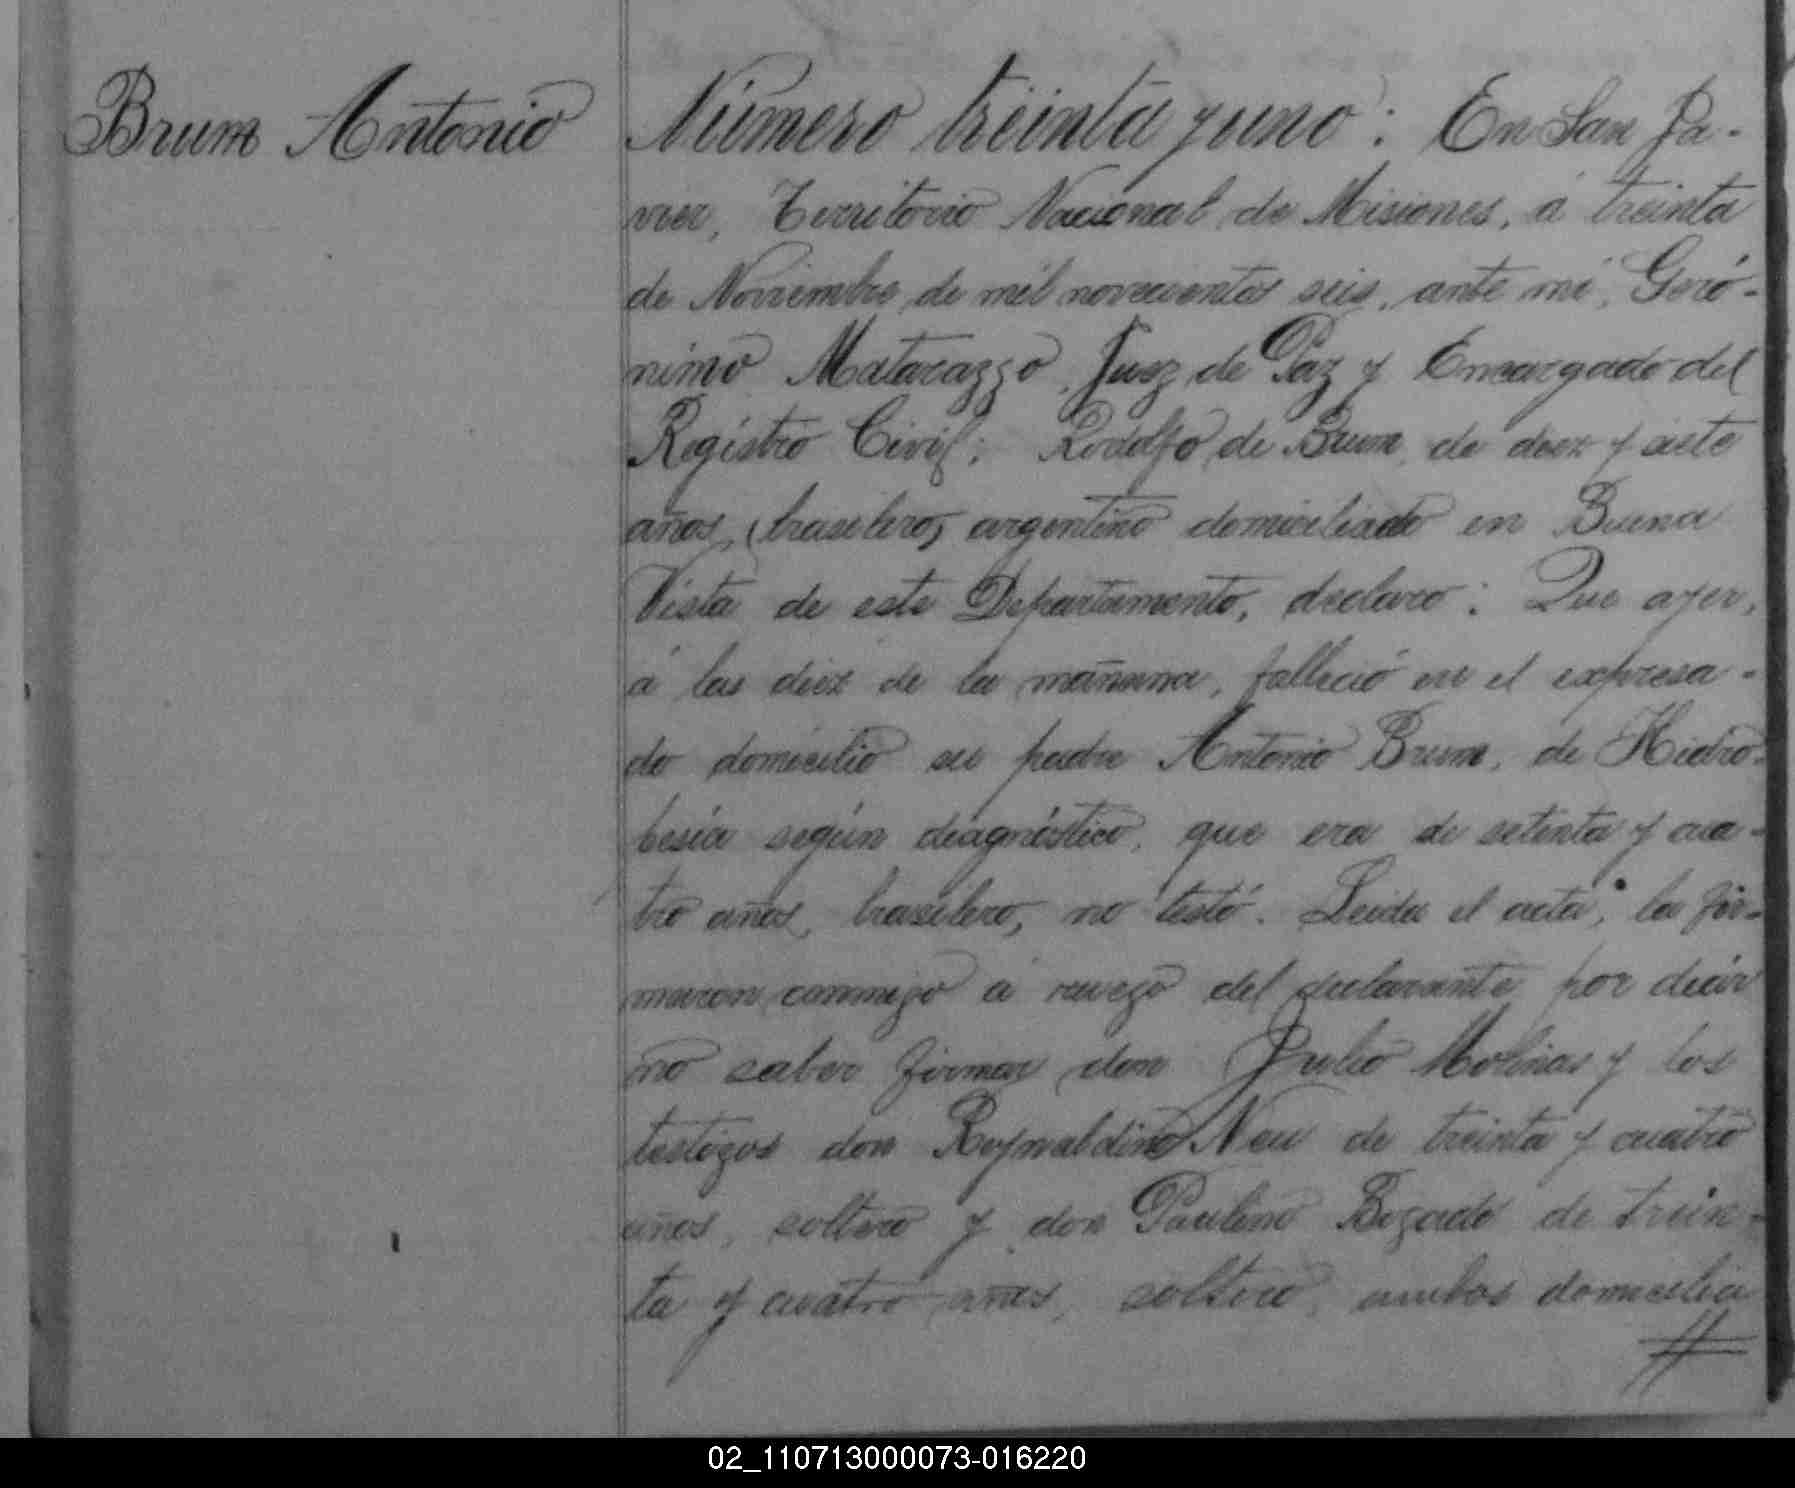 Brum Antonio
Número treinta y uno: En San Ja-
vier, Territorio Nacional de Misiones, á treinta
de Noviembre de mil novecientos seis, ante mi, Geró-
nimo Matarazzo, Juez de Paz y Encargado del
Registro Civil; Rodolfo de Brum, de diez y siete
años, (brasilero) argentino domiciliado en Buena
Vista de este Departamento, declaro: Que ayer,
á las diez de la mañana, falleció en el expresa-
do domicilio su padre Antonio Brum, de Hidro-
pesia según diagnóstico, que era de setenta y cua-
tro años, brasilero, no testó. Leida el acta, la fir-
maron conmigo á ruego del declarante por decir
no saber firmar don Julio Molinas y los
testigos don Reynaldino Neu de treinta y cuatro
años, soltero y don Paulino de trein-
ta y cuatro años, soltero, ambos domicilia
02_110713000073-016220